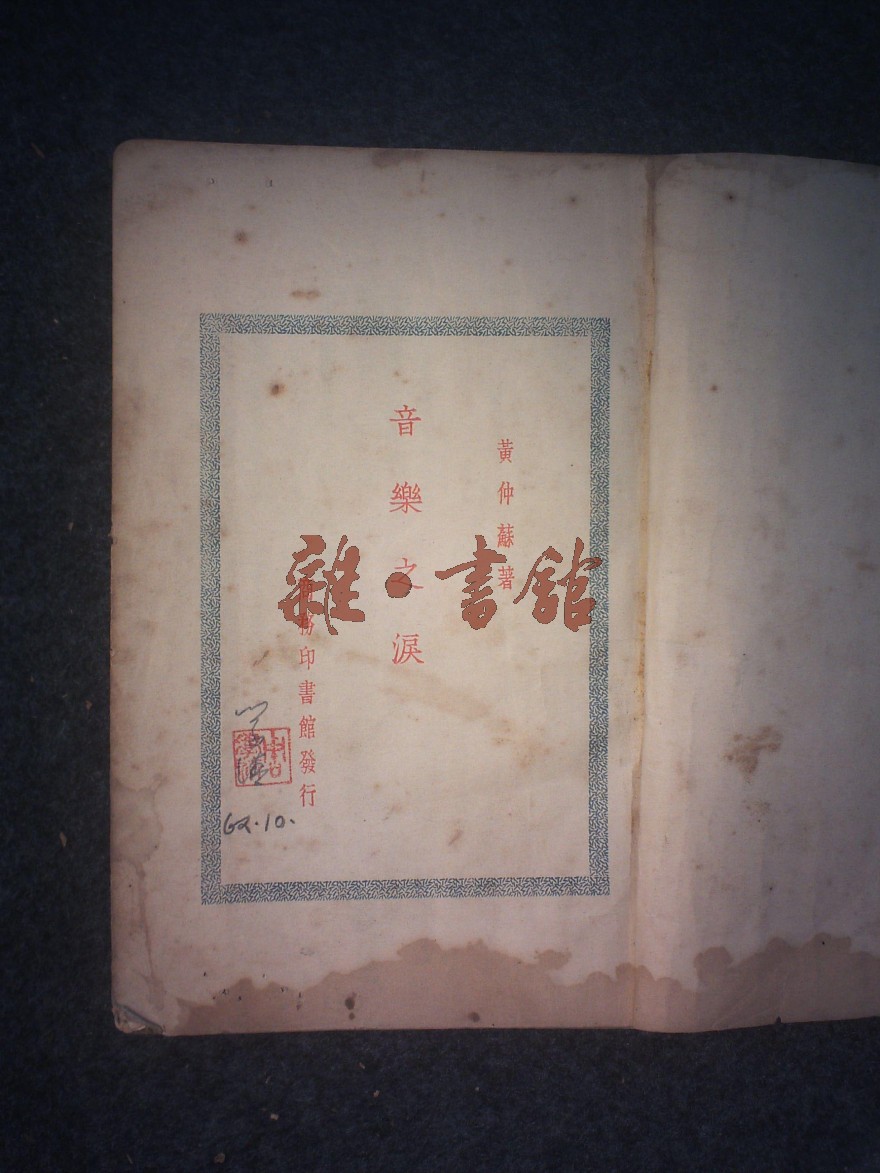 黃仲蘇著
音樂之淚
商務印書館發行
雜·書館
62.10.